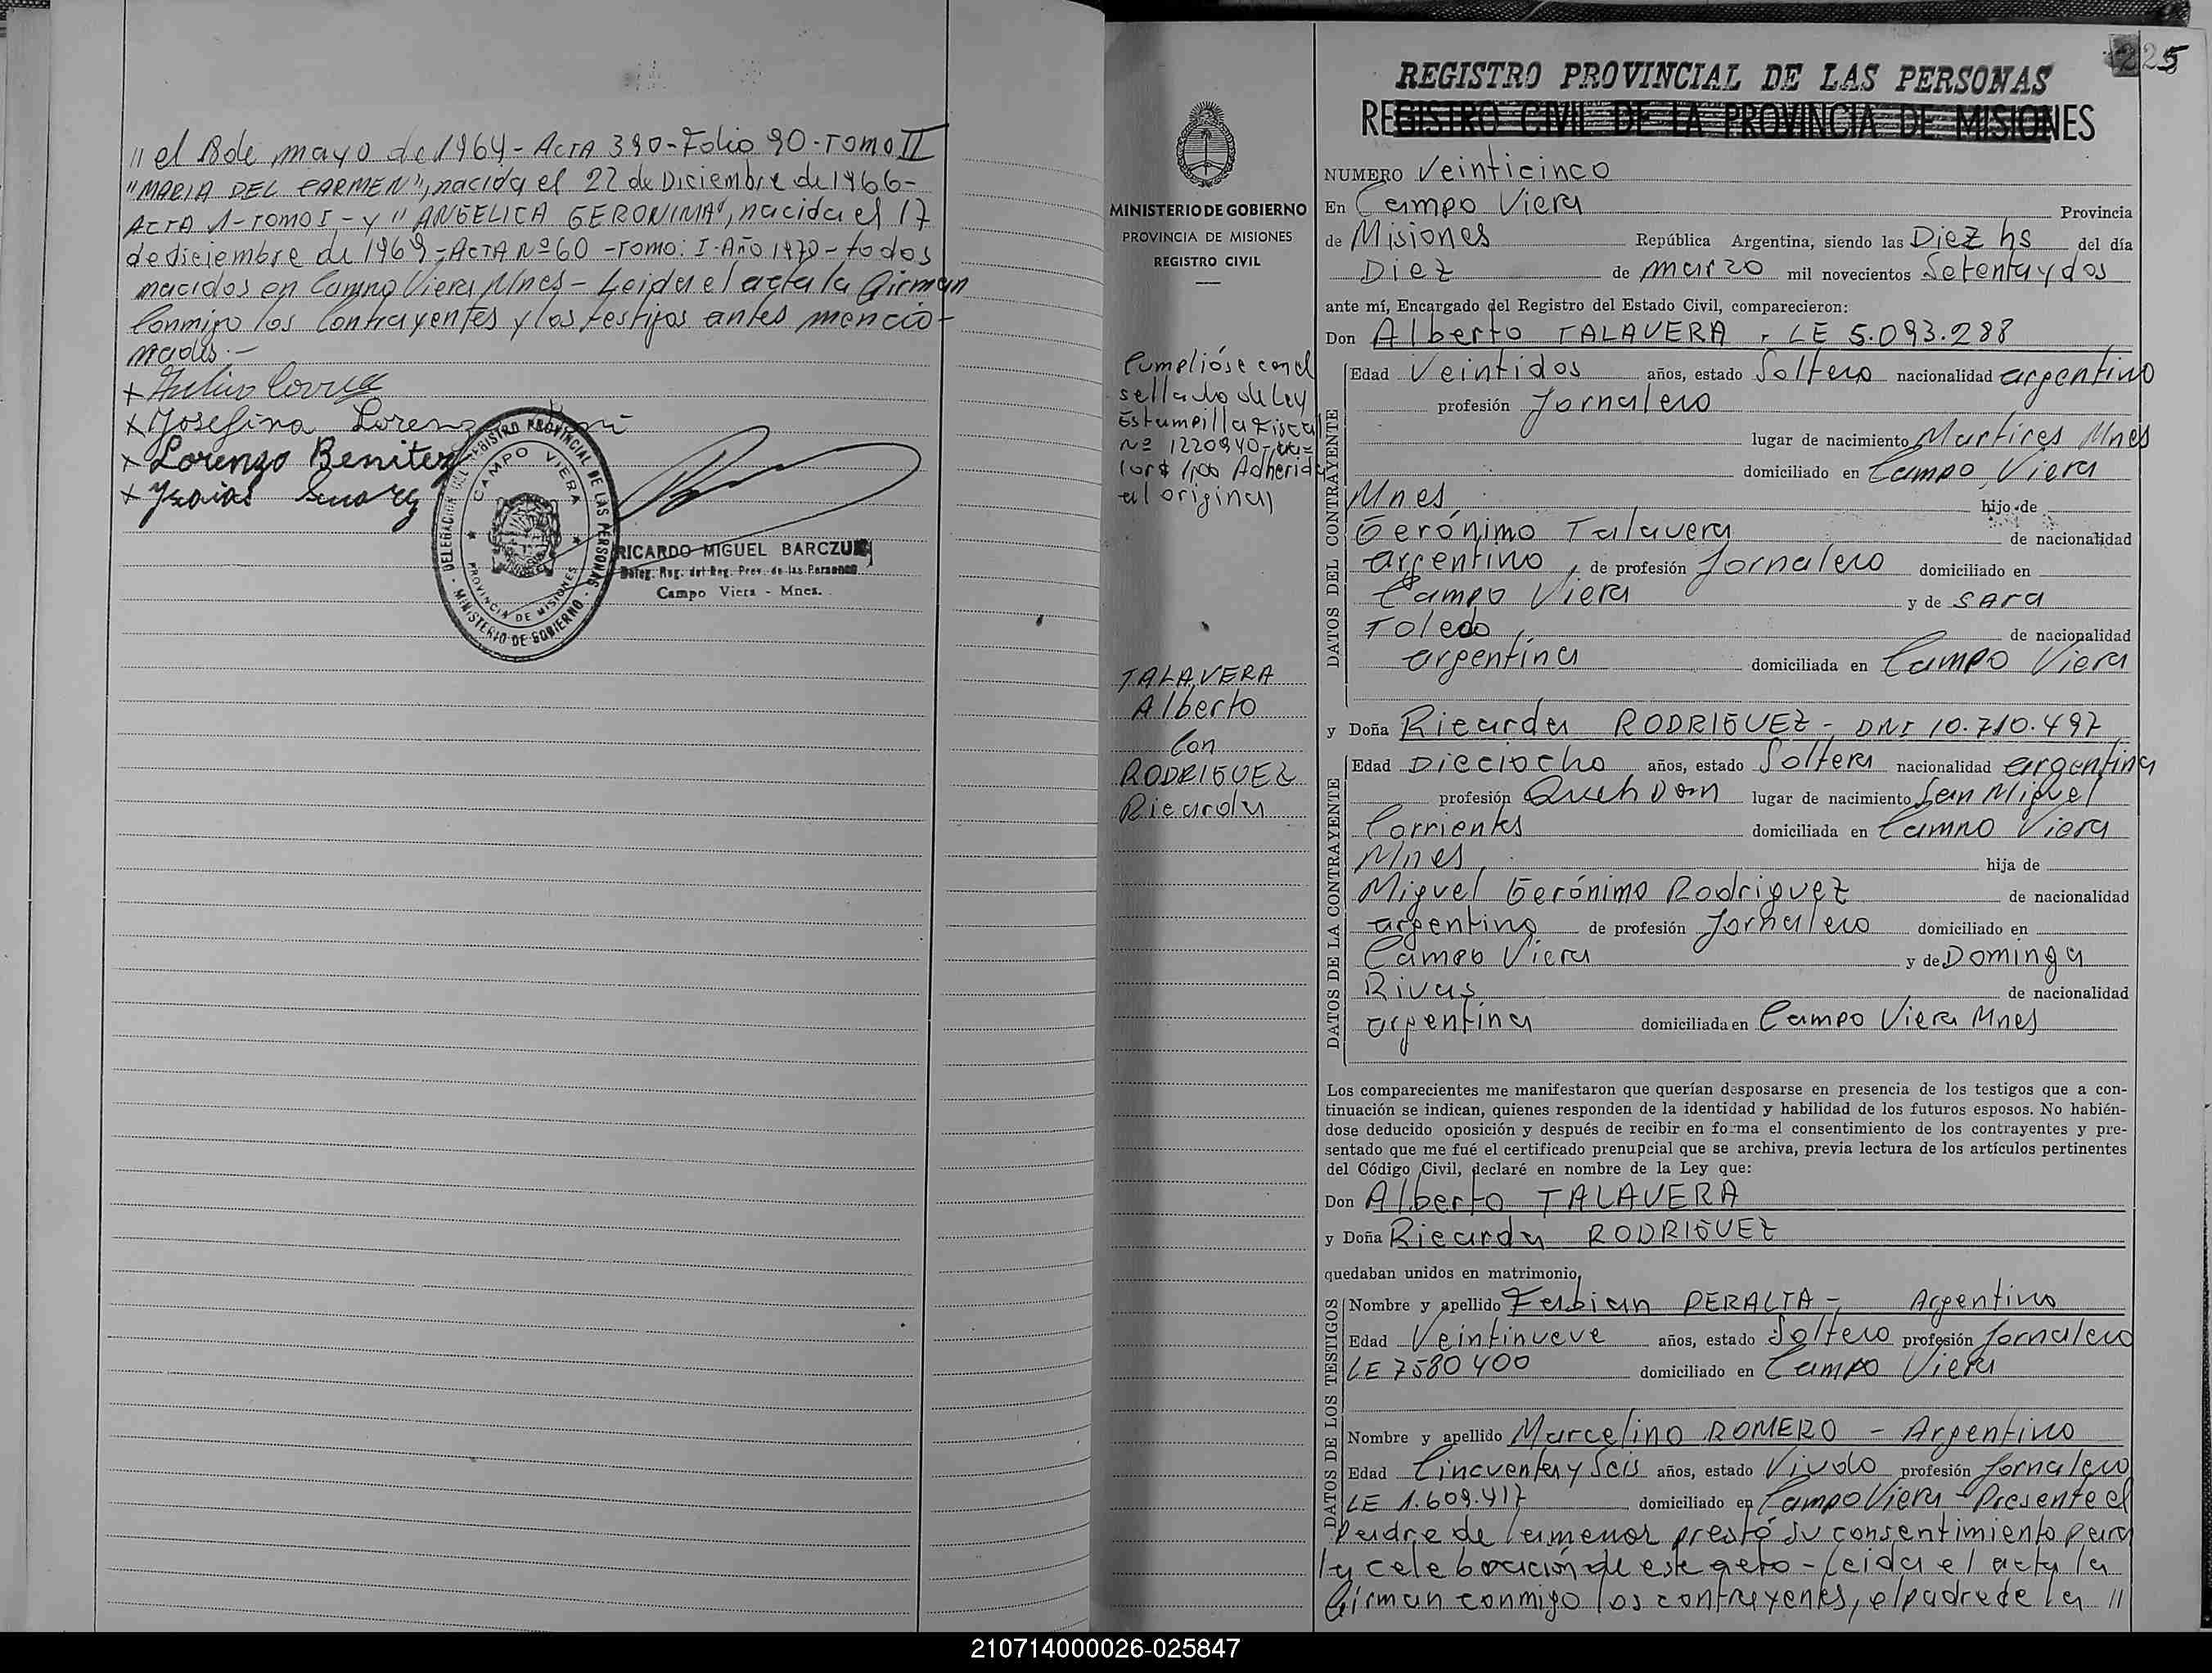 " el 18 de mayo de 1964 - ACTA 390 - Folio 90 - TOMO II
"MARIA DEL CARMEN", nacida el 22 de Diciembre de 1966 -
ACTA 1 - TOMO I - y "ANGELICA GERONIMA", nacida el 17
de diciembre de 1969 - ACTA Nº 60 - TOMO: I - Año 1970 - todos
nacidos en Campo Viera Mnes - Leida el acta la firman
Conmigo los Contrayentes y los testigos antes mencio-
nados.-
+ Julio
+ Josefina
+ Lorenzo Benitez
+ Ysaias Suarez
DELEGACION DEL REGISTRO PROVINCIAL DE LAS PERSONAS
CAMPO VIERA
PROVINCIA DE MISIONES
MINISTERIO DE GOBIERNO
RICARDO MIGUEL BARCZUK
Deleg. Reg. del Reg. Prov. de las Personas
Campo Viera - Mnes.
225
REGISTRO PROVINCIAL DE LAS PERSONAS
REGISTRO CIVIL DE LA PROVINCIA DE MISIONES
MINISTERIO DE GOBIERNO
PROVINCIA DE MISIONES
REGISTRO CIVIL
Cumplióse con el
sellado de Ley
Estampilla Fiscal
Nº 1220940 - va-
lor $ 1,00 Adherida
al original
TALAVERA
Alberto
Con
RODRIGUEZ
Ricarda
NUMERO Veinticinco
En Campo Viera Provincia
de Misiones República Argentina, siendo las Diez hs del día
Diez de marzo mil novecientos Setenta y dos
ante mí, Encargado del Registro del Estado Civil, comparecieron:
Don Alberto TALAVERA - LE 5.093.288
DATOS DEL CONTRAYENTE
Edad Veintidos años, estado Soltero nacionalidad argentino
profesión Jornalero
lugar de nacimiento Martires Mnes
domiciliado en Campo Viera
Mnes. hijo de
Gerónimo Talavera de nacionalidad
argentino, de profesión Jornalero domiciliado en
Campo Viera y de SARA
Toledo, de nacionalidad
argentina domiciliada en Campo Viera
y Doña Ricarda RODRIGUEZ - DNI 10.710.497
DATOS DE LA CONTRAYENTE
Edad Dieciocho años, estado Soltera nacionalidad argentina
profesión Queh Dom lugar de nacimiento San Miguel
Corrientes domiciliada en Campo Viera
Mnes. hija de
Miguel Gerónimo Rodriguez de nacionalidad
argentino de profesión Jornalero domiciliado en
Campo Viera y de Dominga
Rivas de nacionalidad
argentina domiciliada en Campo Viera Mnes
Los comparecientes me manifestaron que querían desposarse en presencia de los testigos que a con-
tinuación se indican, quienes responden de la identidad y habilidad de los futuros esposos. No habién-
dose deducido oposición y después de recibir en forma el consentimiento de los contrayentes y pre-
sentado que me fué el certificado prenupcial que se archiva, previa lectura de los artículos pertinentes
del Código Civil, declaré en nombre de la Ley que:
Don Alberto TALAVERA
y Doña Ricarda RODRIGUEZ
quedaban unidos en matrimonio,
DATOS DE LOS TESTIGOS
Nombre y apellido Fabian PERALTA - Argentino
Edad Veintinueve años, estado Soltero profesión Jornalero
LE 7580400 domiciliado en Campo Viera
Nombre y apellido Marcelino ROMERO - Argentino
Edad Cincuenta y Seis años, estado Viudo profesión Jornalero
LE 1.609.417 domiciliado en Campo Viera - Presente el
Padre de la menor prestó su consentimiento para
la celebración de este acto - Leida el acta la
firman conmigo los contrayentes, el padre de la "
210714000026-025847